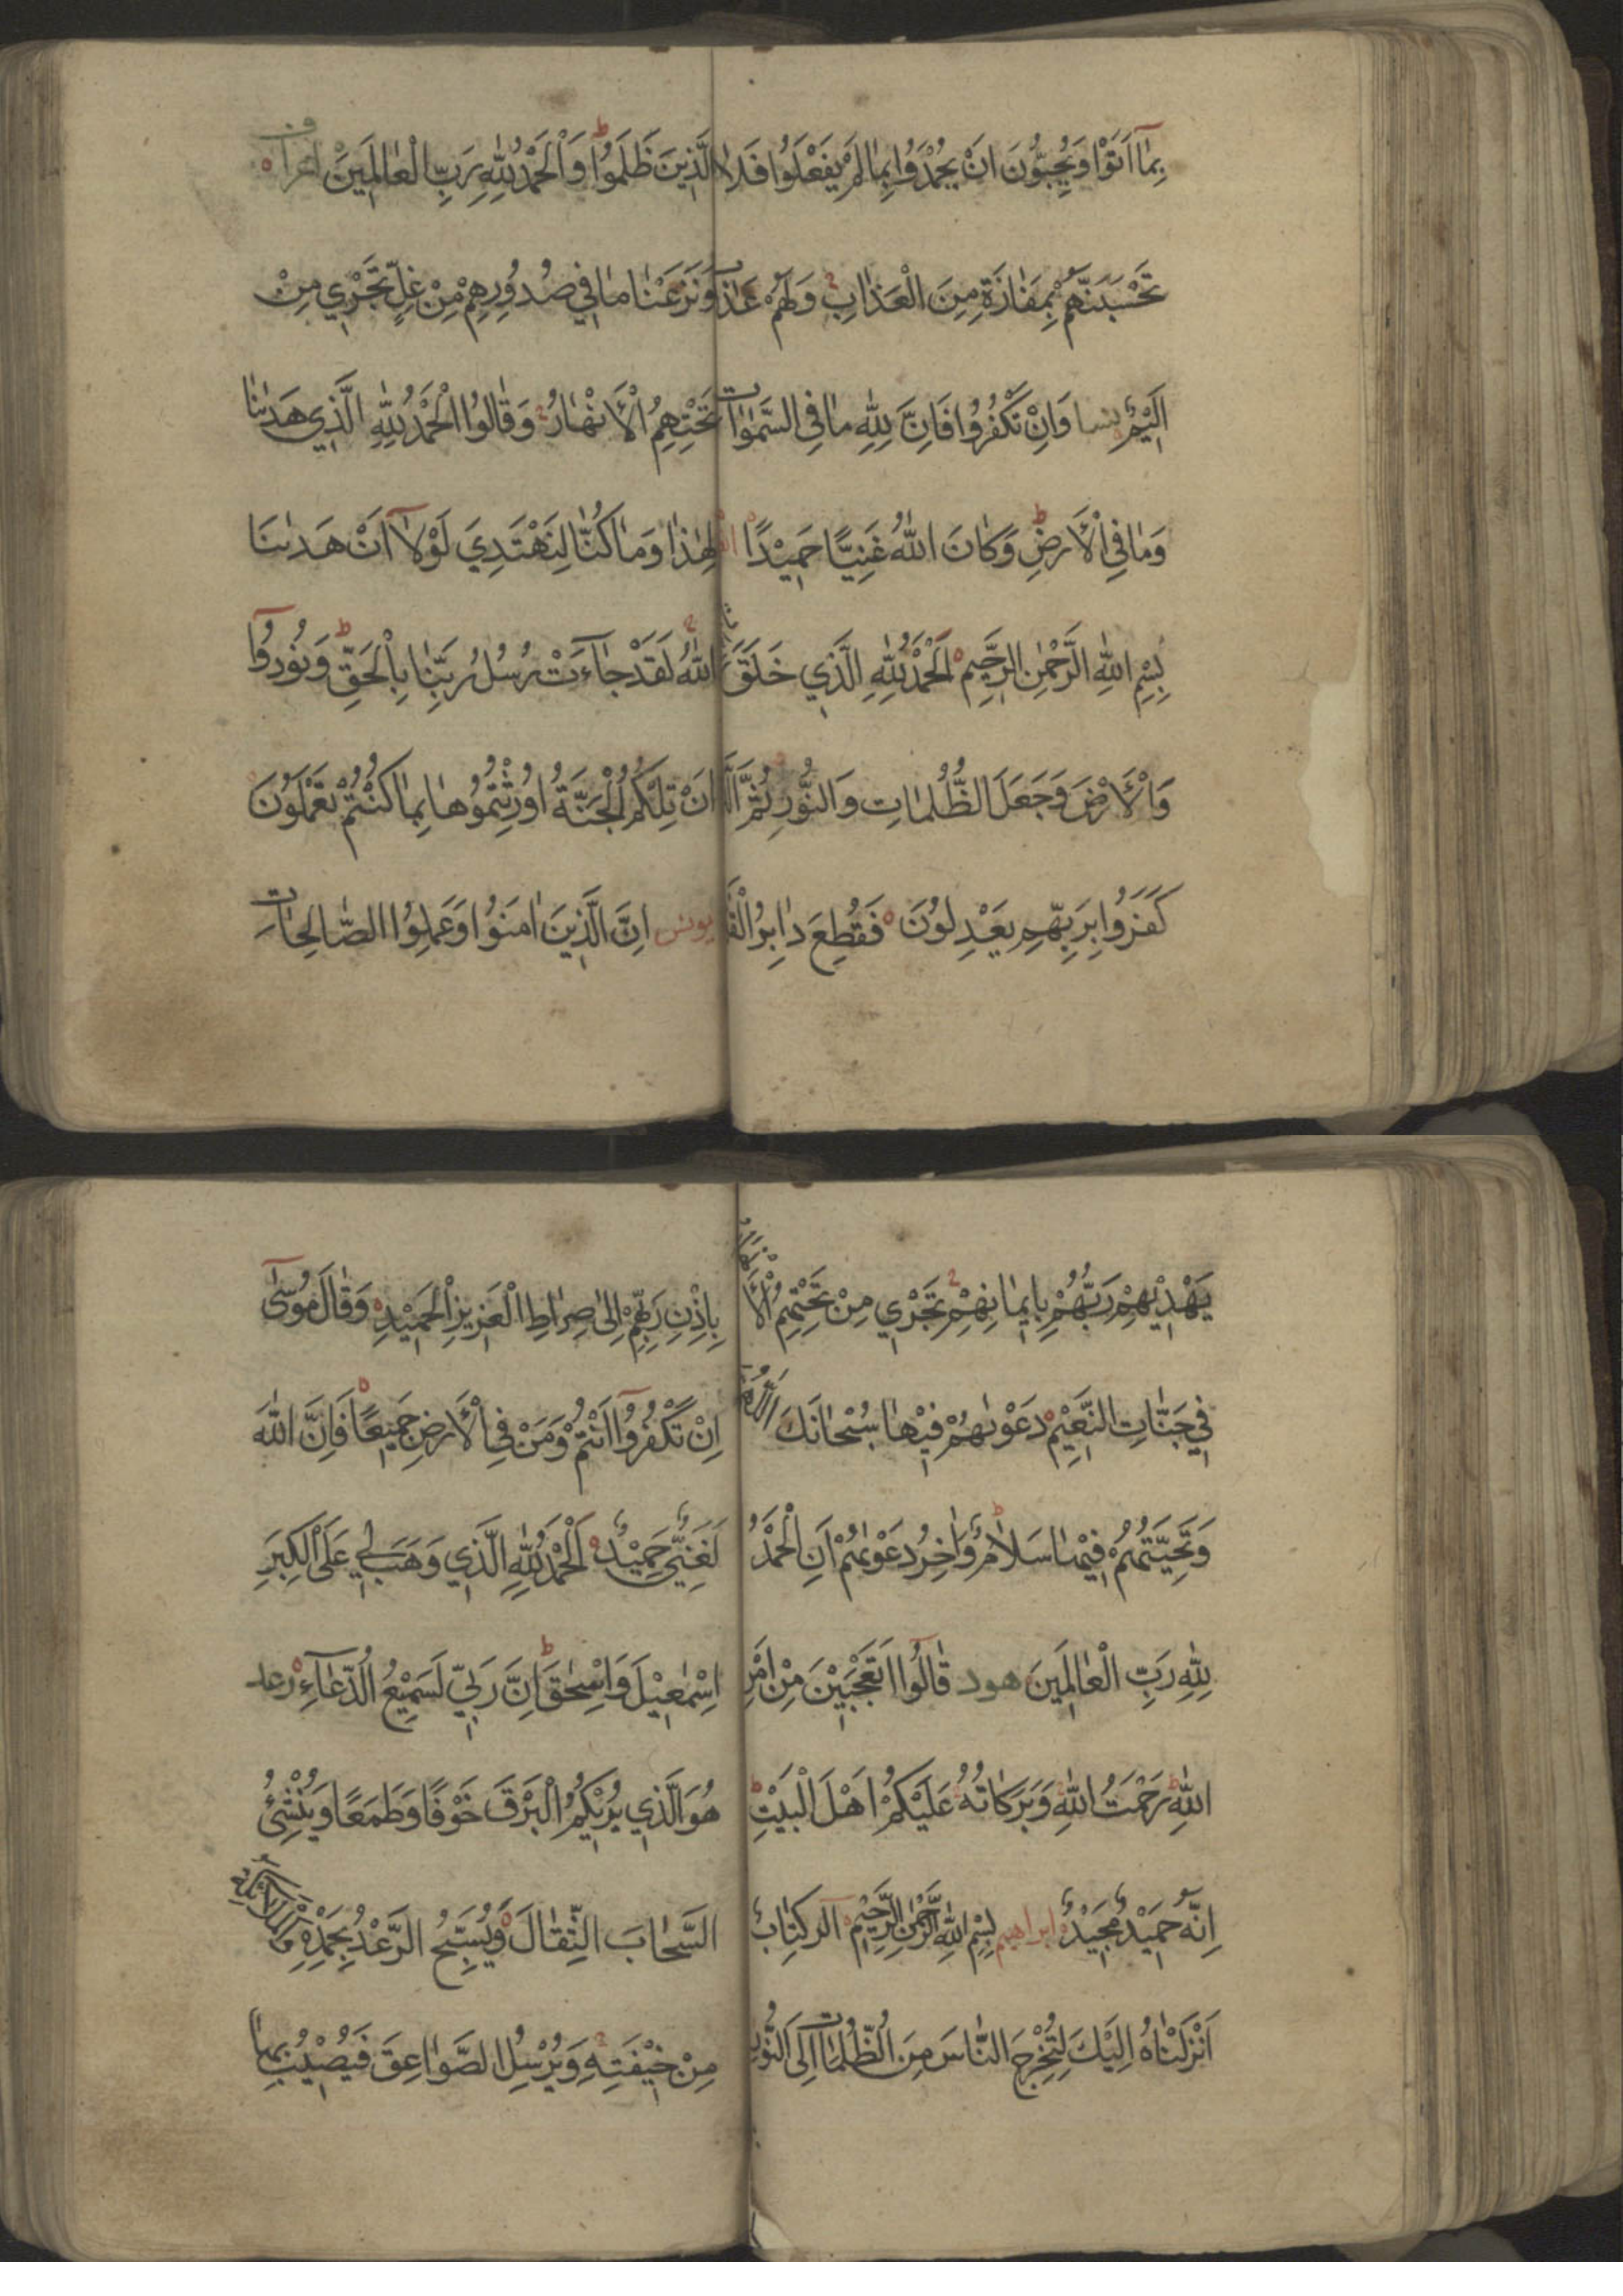 بِمَآ اَتَوْا وَيُحِبُّونَ اَنْ يُحْمَدُوا بِمَا لَمْ يَفْعَلُوا فَلَا
تَحْسَبَنَّهُمْ بِمَفَازَةٍ مِنَ الْعَذَابِ وَلَهُمْ عَذَابٌ
اَلِيْمٌ نسا وَاِنْ تَكْفُرُوا فَاِنَّ لِلّٰهِ مَا فِى السَّمٰوَاتِ
وَمَا فِى الْاَرْضِ وَكَانَ اللّٰهُ غَنِيًّا حَمِيْدًا
بِسْمِ اللّٰهِ الرَّحْمٰنِ الرَّحِيْمِ اَلْحَمْدُ لِلّٰهِ الَّذِي خَلَقَ
وَالْاَرْضَ وَجَعَلَ الظُّلُمَاتِ وَالنُّوْرِ ثُمَّ
كَفَرُوا بِرَبِّهِمْ يَعْدِلُوْنَ فَقُطِعَ دَابِرُ
الَّذِينَ ظَلَمُوْا وَالْحَمْدُ لِلّٰهِ رَبِّ الْعَالَمِيْنَ اعراف
وَنَزَعْنَا مَا فِي صُدُوْرِهِمْ مِنْ غِلٍّ تَجْرِي مِنْ
تَحْتِهِمُ الْاَنْهَارُ وَقَالُوا الْحَمْدُ لِلّٰهِ الَّذِي هَدٰىنَا
لِهٰذَا وَمَا كُنَّا لِنَهْتَدِيَ لَوْلَآ اَنْ هَدٰىنَا
اللّٰهُ لَقَدْ جَآءَتْ رُسُلُ رَبِّنَا بِالْحَقِّ وَنُوْدُوْآ
اَنْ تِلْكُمُ الْجَنَّةُ اُوْرِثْتُمُوْهَا بِمَا كُنْتُمْ تَعْمَلُوْنَ
يونس اِنَّ الَّذِيْنَ اٰمَنُوْا وَعَمِلُوا الصَّالِحَاتِ
يَهْدِيْهِمْ رَبُّهُمْ بِاِيْمَانِهِمْ تَجْرِي مِنْ تَحْتِهِمُ الْاَنْهَارُ
فِي جَنَّاتِ النَّعِيْمِ دَعْوٰىهُمْ فِيْهَا سُبْحَانَكَ اللّٰهُمَّ
وَتَحِيَّتُهُمْ فِيْهَا سَلَامٌ وَاٰخِرُ دَعْوٰىهُمْ اَنِ الْحَمْدُ
لِلّٰهِ رَبِّ الْعَالَمِيْنَ هود قَالُوْآ اَتَعْجَبِيْنَ مِنْ اَمْرِ
اللّٰهِ رَحْمَتُ اللّٰهِ وَبَرَكَاتُهُ عَلَيْكُمْ اَهْلَ الْبَيْتِ
اِنَّهُ حَمِيْدٌ مَجِيْدٌ ابراهيم بِسْمِ اللّٰهِ الرَّحْمٰنِ الرَّحِيْمِ الر كِتَابٌ
اَنْزَلْنَاهُ اِلَيْكَ لِتُخْرِجَ النَّاسَ مِنَ الظُّلُمَاتِ اِلَى النُّوْرِ
بِاِذْنِ رَبِّهِمْ اِلٰى صِرَاطِ الْعَزِيْزِ الْحَمِيْدِ وَقَالَ مُوْسٰٓى
اِنْ تَكْفُرُوْآ اَنْتُمْ وَمَنْ فِي الْاَرْضِ جَمِيْعًا فَاِنَّ اللّٰهَ
لَغَنِيٌّ حَمِيْدٌ اَلْحَمْدُ لِلّٰهِ الَّذِي وَهَبَ لِي عَلَى الْكِبَرِ
اِسْمٰعِيْلَ وَاِسْحٰقَ اِنَّ رَبِّي لَسَمِيْعُ الدُّعَآءِ رعد
هُوَ الَّذِي يُرِيْكُمُ الْبَرْقَ خَوْفًا وَطَمَعًا وَيُنْشِئُ
السَّحَابَ الثِّقَالَ وَيُسَبِّحُ الرَّعْدُ بِحَمْدِهِ وَالْمَلَائِكَةُ
مِنْ خِيْفَتِهِ وَيُرْسِلُ الصَّوَاعِقَ فَيُصِيْبُ بِهَا